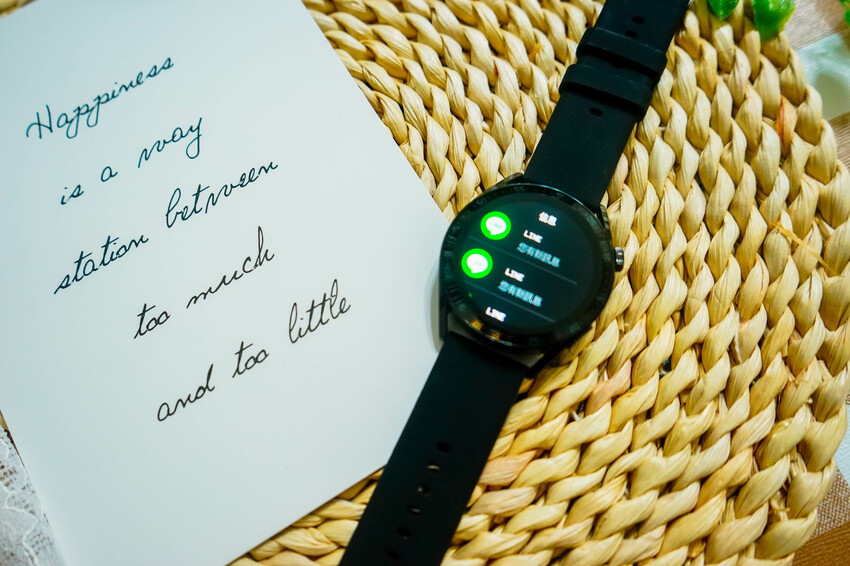 Happiness
is a way
station between
too much
and too little
信息
LINE
您有新訊息
LINE
您有新訊息
LINE